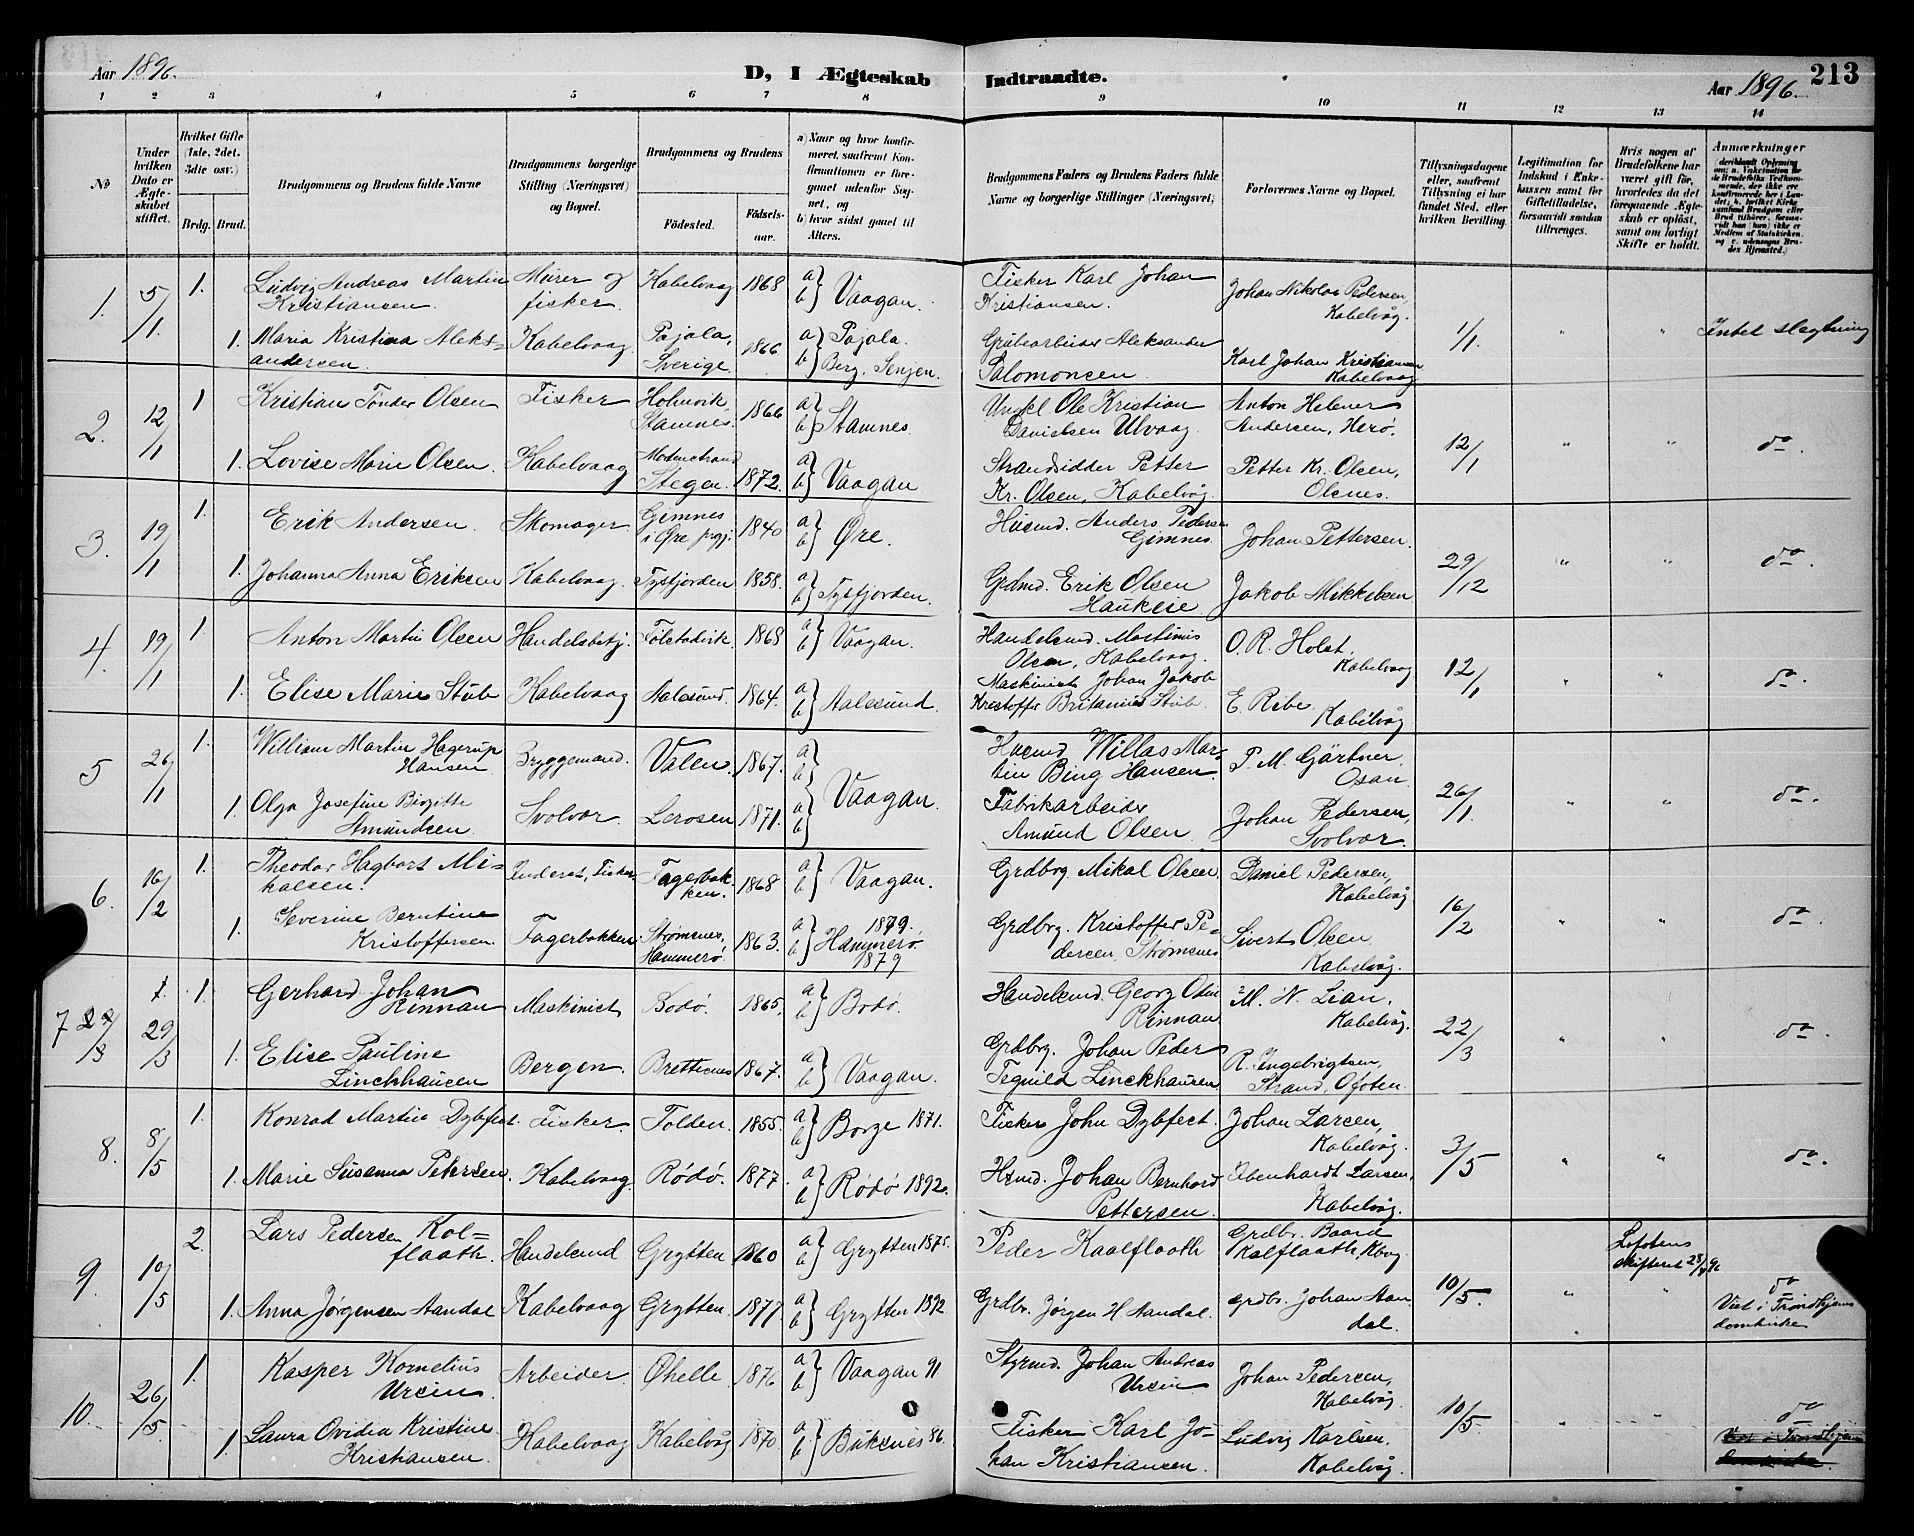 Aar 1896.
D, I Ægteskab Indtraadte.
Aar 1896.
213
1 2 3 4 5 6 7 8 9 10 11 12 13 14
№
Under hvilken Dato er Ægteskabet stiftet.
Hvilket Gifte (1ste, 2det, 3die osv.)
Brdg. Brud.
Brudgommens og Brudens fulde Navne
Brudgommens borgerlige Stilling (Næringsvei) og Bopæl.
Brudgommens og Brudens
Födested.
Födselsaar.
a) Naar og hvor konfirmeret, saafremt Konfirmationen er foregaaet udenfor Sognet, og
b) hvor sidst gaaet til Alters.
Brudgommens Faders og Brudens Faders fulde Navne og borgerlige Stillinger (Næringsvei)
Forlovernes Navne og Bopæl.
Tillysningsdagene eller, saafremt Tillysning ei har fundet Sted, efter hvilken Bevilling.
Legitimation for Indskud i Enkekassen samt for Giftetilladelse, forsaavidt saadan tiltrænges.
Hvis nogen af Brudefolkene har været gift för, hvorledes da det foregaaende Ægteskab er oplöst, samt om lovligt Skifte er holdt.
Anmærkninger
1. 5/1 1. Ludvig Andreas Martin Kristiansen. Murer og fisker Kabelvaag 1868 a b } Vaagan. Fisker Karl Johan Kristiansen. Johan Nikolai Pedersen, Kabelvåg. 1/1 " " Intet slegtning
1. Maria Kristina Aleksandersen. Kabelvaag. Pajala, Sverige 1866 a b } Pajala. Berg. Senjen. Grubearbeider Aleksander Salomonsen. Karl Johan Kristiansen Kabelvaag
2. 12/1 1 Kristian Tönder Olsen Fisker Holmvik, Stamnes. 1866 a b } Stamnes. Ungkl Ole Kristian Danielsen Ulvaag. Anton Helmer Andersen, Herö. 12/1 " " do.
1. Lovise Marie Olsen. Kabelvaag Stegen. 1872. a b } Vaagan Strandsidder Petter Kr. Olsen, Kabelvåg. Petter Kr. Olsen, Olsnes.
3. 19/1 1. Erik Andersen. Skomager Gimnes i Øre prgj. 1840 a b } Øre. Husmd. Anders Pedersen Gimnes Johan Pettersen. 29/12 " " do.
1. Johanna Anna Eriksen Kabelvaag. Tysfjorden 1858. a b } Tysfjorden. Grdmd. Erik Olsen Haukøie Jakob Mikkelsen
4. 19/1 1 Anton Martin Olsen Handelsbetj. Følstadvik. 1868 a b } Vaagan. Handelsmd. Martinus Olsen, Kabelvaag. O. R. Holst. Kabelvaag 12/1 " " do.
1. Elise Marie Stub Kabelvaag Aalesund. 1864. a b } Aalesund. Maskinist Johan Jakob Kristoffer Britanius Stub. E. Ribe. Kabelvåg
5 26/1 1. William Martin Hagerup Hansen Bryggemand. Valen. 1867. a b Husmd Willas Martin Bing Hansen. P. M. Gärtner, Osan 26/1 " " do.
1. Olga Josefine Birgitte Amundsen. Svolvær. Lerosen 1871. a b } Vaagan. Fabrikarbeider Amund Olsen. Johan Pedersen, Svolvær.
6. 16/2 1. Theodor Hagbart Mikalsen. Inderst, Fisker Fagerbakken. 1868 a b } Vaagan. Grdbrg. Mikal Olsen Daniel Pedersen, Kabelvåg 16/2 " " do.
1. Severine Berntine Kristoffersen. Fagerbakken. Strømsnes, Hammerø. 1863. a b } 1879. Hammerø 1879 Grdbrg. Kristoffer Pedersen, Strømsnes Sivert Olsen Kabelvåg.
7 29/3 1. Gerhard Johan Rinnan Maskinist Bodø. 1865. a b } Bodø. Handelsmd. Georg Rinnan M. N. Lian. Kabelvåg. 22/3 " " do.
1. Elise Pauline Linckhausen Bergen. Brettesnes 1867. a b } Vaagan. Grdbrg. Johan Peder Tegnild Linckhausen R. Ingebrigtsen, Strand, Ofoten.
8. 8/5 1. Konrad Martin Dybfest. Fisker. Folden. 1855. a b } Borge 1871. Fisker John Dybfest. Johan Larsen, Kabelvåg. 3/5 " " do.
1. Marie Susanna Petersen. Kabelvaag. Rödö. 1877. a b } Rödö 1892. Hsmd. Johan Bernhard Pettersen. Ebenhardt Larsen, Kabelvåg.
9. 10/5 2. Lars Pedersen Kolflaath. Handelsmd Grytten 1860 a b } Grytten 1875. Peder Kaalflaath Grdbr. Baard Kalflaath, Kbvg. 10/5. " " Lofotens skifteret 28/4 96 do
1. Anna Jørgensen Aandal Kabelvaag Grytten. 1877. a b } Grytten 1892 Grdbr. Jørgen H. Aandal. Grdbr. Johan Aandal. Viet i Trondhjems domkirke
10. 26/5. 1. Kasper Kornelius Ursin. Arbeider. Øhelle. 1876 a b } Vaagan 91 Styrmd. Johan Andreas Ursin Johan Pedersen, Kabelvåg. 10/5. " " do
1. Laura Ovidia Kristine Kristiansen. Kabelvaag Kabelvåg 1870 a b } Buksnes 86. Fisker Karl Johan Kristiansen. Ludvig Karlsen. Kabelvåg.